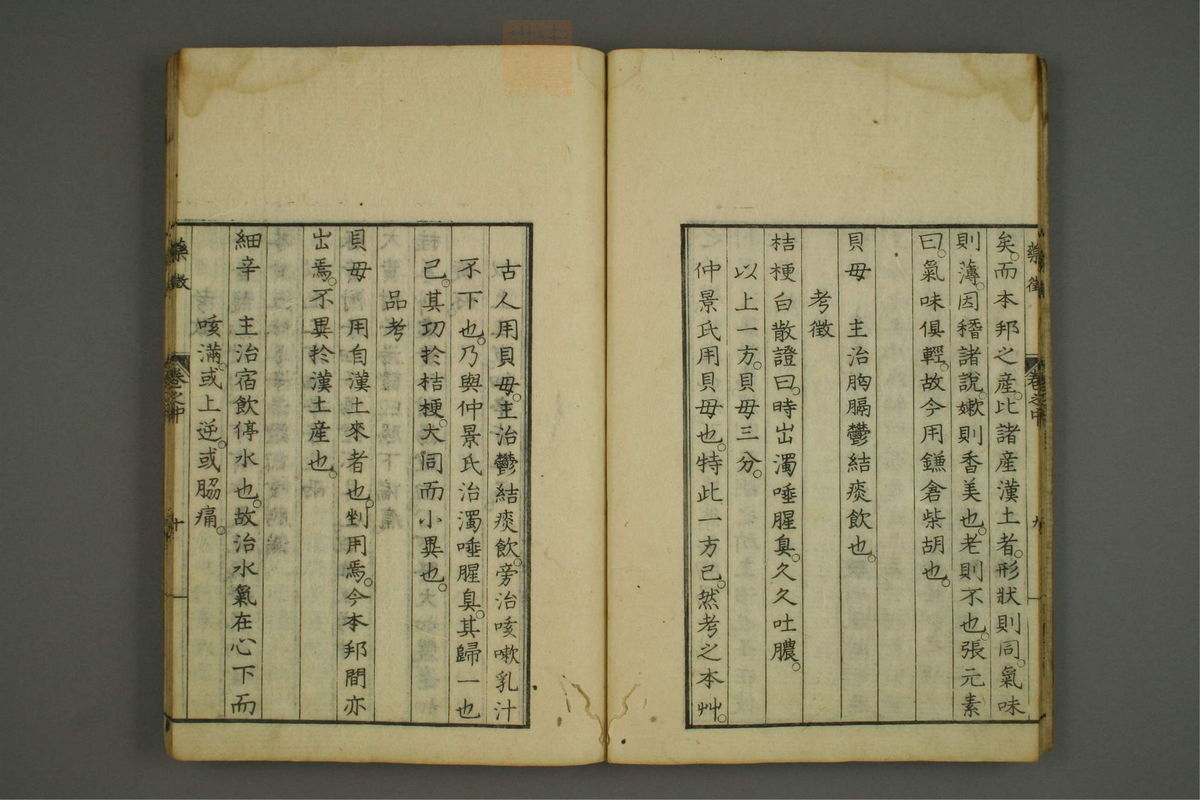 矣。而本邦之産。比諸産漢土者。形狀則同。氣味
則薄。因稽諸說。嫰則香美也。老則不也。張元素
曰。氣味俱輕。故今用鎌倉柴胡也。
貝母　主治胸膈鬱結痰飲也。
考徵
桔梗白散證曰。時出濁唾腥臭。久久吐膿。
以上一方。貝母三分。
仲景氏用貝母也。特此一方已。然考之本艸。
藥徵　卷之中　九
古人用貝母。主治鬱結痰飲。旁治咳嗽乳汁
不下也。乃與仲景氏治濁唾腥臭。其歸一也
已。其功於桔梗。大同而小異也。
品考
貝母　用自漢土來者也。剉用焉。今本邦間亦
出焉。不異於漢土産也。
細辛　主治宿飲停水也。故治水氣在心下而
咳滿。或上逆。或脇痛。
藥徵　卷之中　十